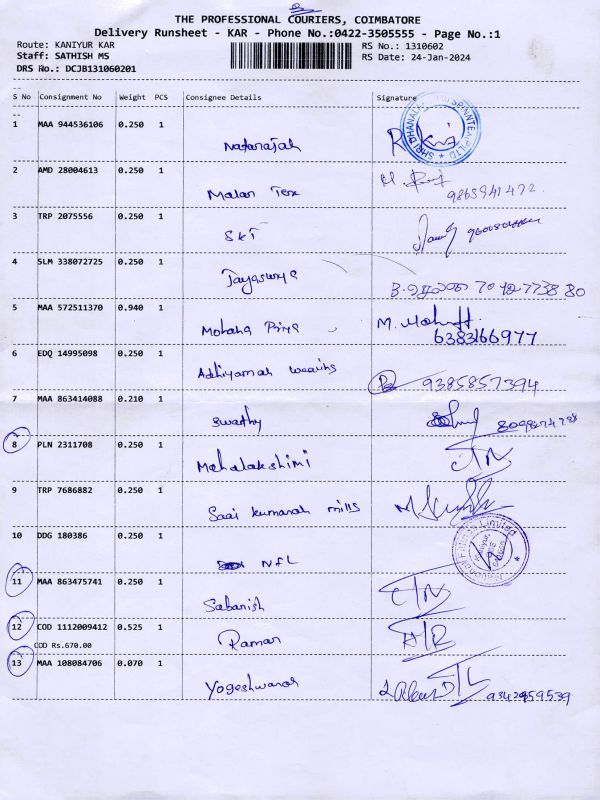 THE PROFESSIONAL COURIERS, COIMBATORE
Delivery Runsheet - KAR - Phone No.:0422-3505555 - Page No.:1
Route: KANIYUR KAR
RS No.: 1310602
Staff: SATHISH MS
RS Date: 24-Jan-2024
DRS No.: DCJB131060201
S No Consignment No Weight PCS Consignee Details Signature
1 MAA 944536106 0.250 1
Natarajah
2 AMD 28004613 0.250 1
Malar Tex 9865941472
3 TRP 2075556 0.250 1
SKT
4 SLM 338072725 0.250 1
Jayasurya 70 12 7738 80
5 MAA 572511370 0.940 1
Mohana Priya M.
6383166977
6 EDQ 14995098 0.250 1
Adhiyamah weaving 9385857394
7 MAA 863414088 0.210 1
Swarthy
8 PLN 2311708 0.250 1
Mahalakshimi
9 TRP 7686882 0.250 1
Saai kumarah mills
10 DDG 180386 0.250 1
NFL
11 MAA 863475741 0.250 1
Sabarish
12 COD 1112009412 0.525 1
COD Rs.670.00
Raman
13 MAA 108084706 0.070 1
Yogeshwaran